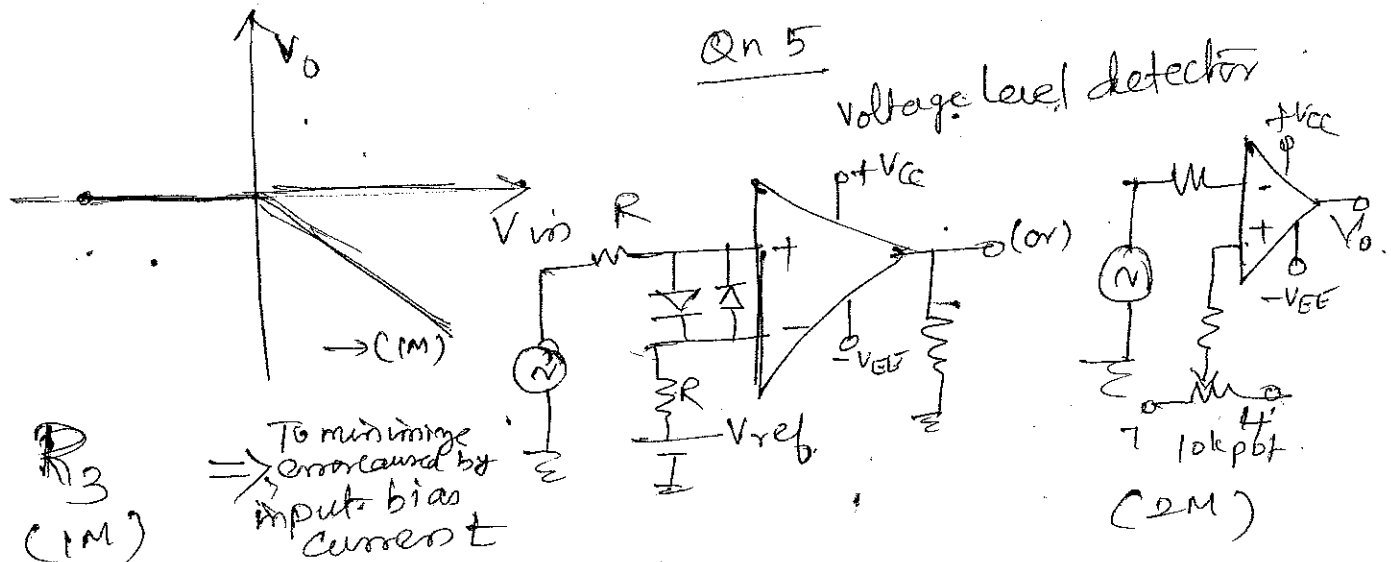 Qn 5
Voltage Level detector
V0
Vin
→(1M)
R
+VCC
+
-
-VEE
(or)
R
Vref
+VCC
-
+
V0.
-VEE
7
4
10k pot
(2M)
R3
(1M)
⇒ To minimize
error caused by
input bias
current